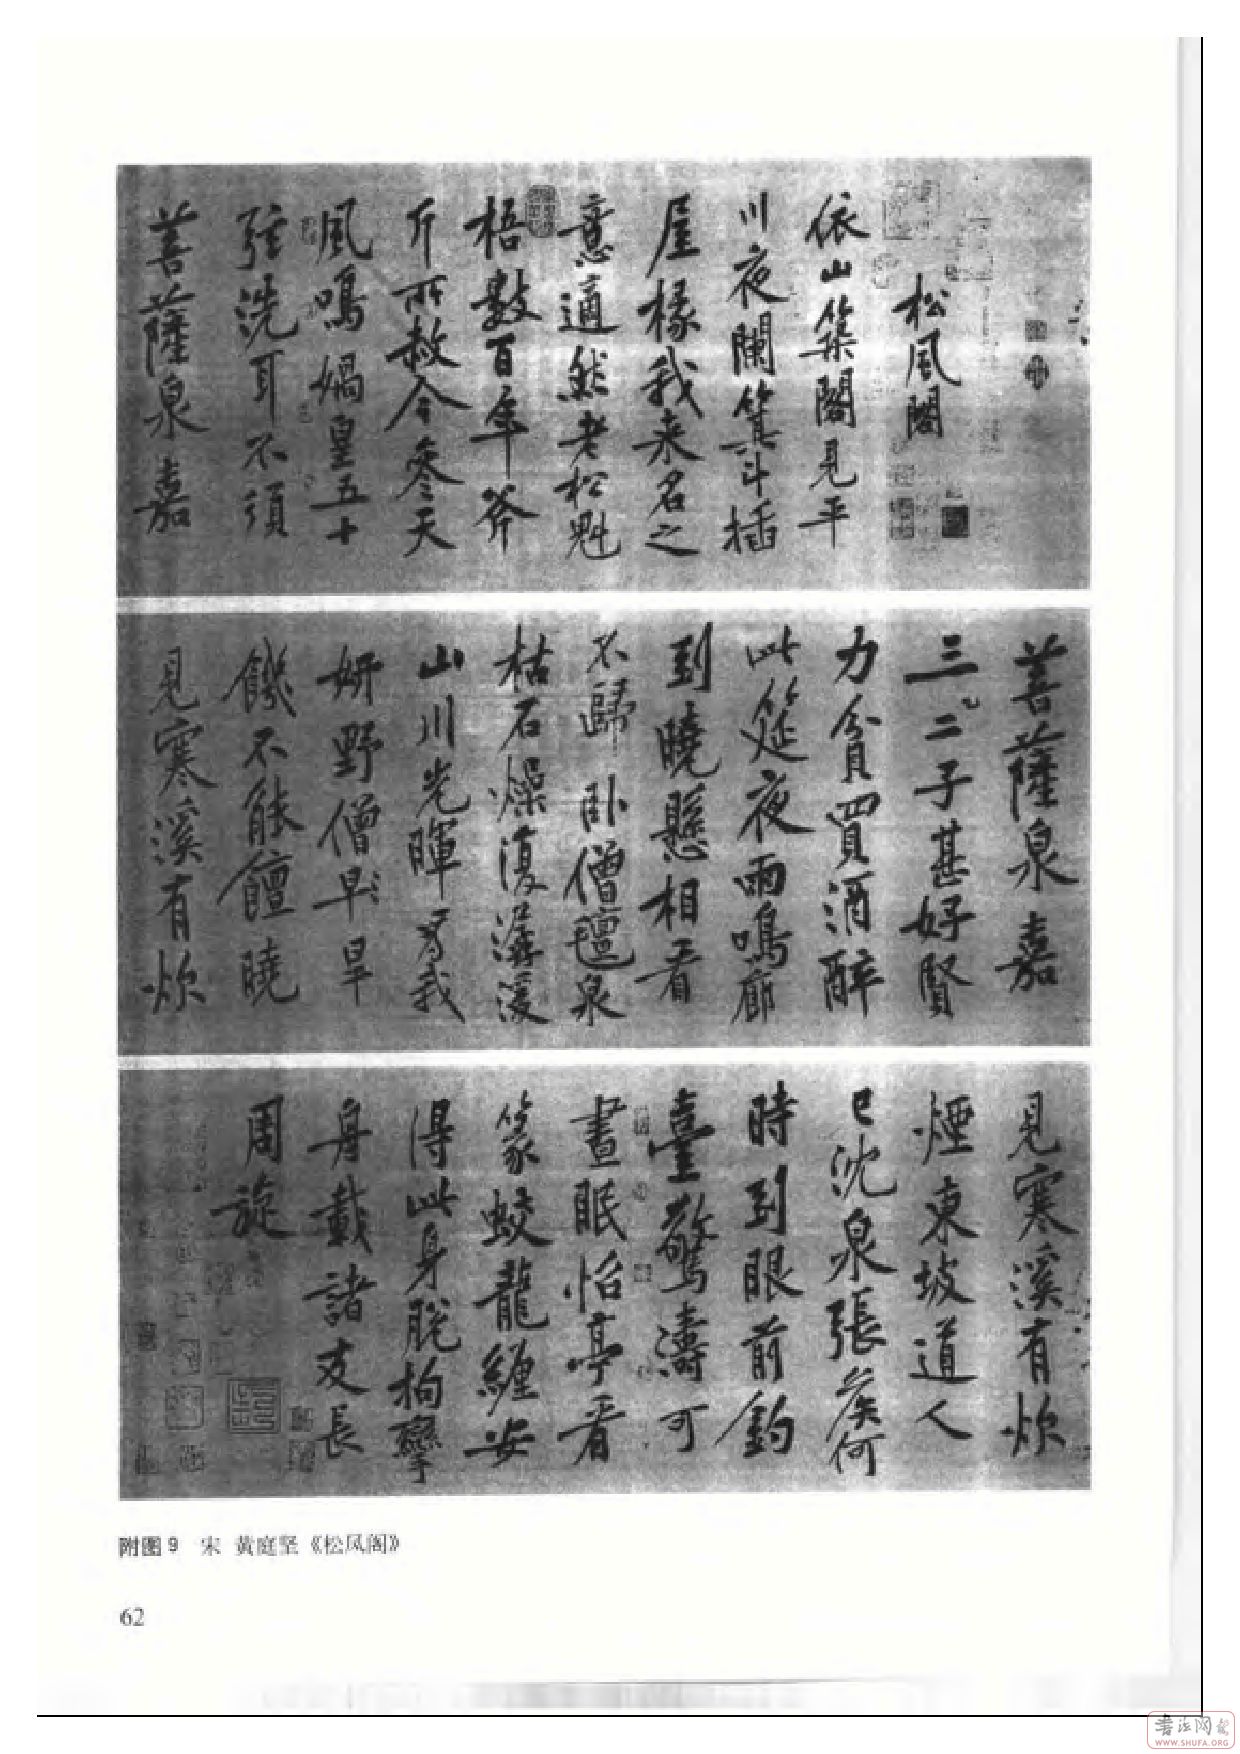 松風閣
依山築閣見平
川夜闌箕斗插
屋椽我来名之
意適然老松魁
梧數百年斧
斤所赦今參天
風鳴媧皇五十
弦洗耳不須
菩薩泉嘉
菩薩泉嘉
三二子甚好賢
力貧買酒醉
此筵夜雨鳴廊
到曉懸相看
不歸卧僧氊泉
枯石燥復潺湲
山川光暉為我
妍野僧早旱
饑不能饘曉
見寒溪有炊
見寒溪有炊
煙東坡道人
已沈泉張侯何
時到眼前釣
臺驚濤可
晝眠怡亭看
篆蛟龍纏安
得此身脫拘攣
舟載諸友長
周旋
附图9 宋 黄庭坚《松风阁》
62
书法网
WWW.SHUFA.ORG